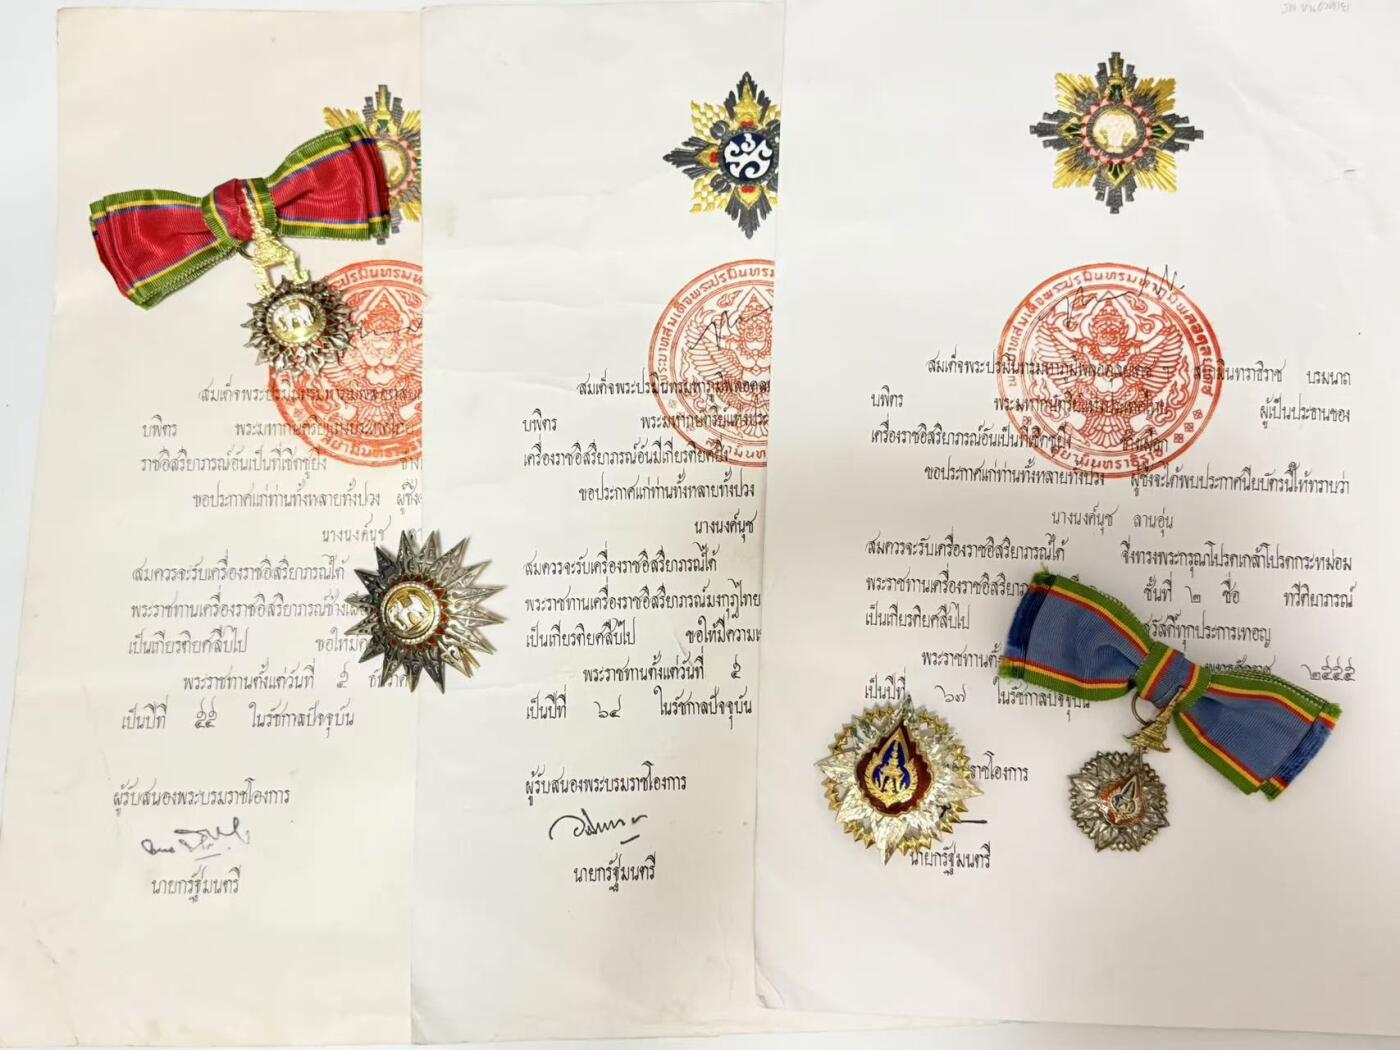 สมเด็จพระปรมินทรมหาภูมิพลอดุลยเดช
บพิตร พระมหากษัตริย์แห่งประเทศไทย
ราชอิสริยาภรณ์อันเป็นที่เชิดชูยิ่ง ช้าง
ขอประกาศแก่ท่านทั้งหลายทั้งปวง ผู้ซึ่ง
นางนงค์นุช
สมควรจะรับเครื่องราชอิสริยาภรณ์ได้
พระราชทานเครื่องราชอิสริยาภรณ์ช้างเผือก
เป็นเกียรติยศสืบไป ขอให้มี
พระราชทานตั้งแต่วันที่ ๕ ธันวาคม
เป็นปีที่ ๕๕ ในรัชกาลปัจจุบัน
ผู้รับสนองพระบรมราชโองการ
นายกรัฐมนตรี
สมเด็จพระปรมินทรมหาภูมิพลอดุลย
บพิตร พระมหากษัตริย์แห่งประ
เครื่องราชอิสริยาภรณ์อันมีเกียรติยศยิ่ง
ขอประกาศแก่ท่านทั้งหลายทั้งปวง
นางนงค์นุช
สมควรจะรับเครื่องราชอิสริยาภรณ์ได้
พระราชทานเครื่องราชอิสริยาภรณ์มงกุฎไทย
เป็นเกียรติยศสืบไป ขอให้มีความ
พระราชทานตั้งแต่วันที่ ๕
เป็นปีที่ ๖๔ ในรัชกาลปัจจุบัน
ผู้รับสนองพระบรมราชโองการ
นายกรัฐมนตรี
สมเด็จพระปรมินทรมหาภูมิพลอดุลยเดช สยามินทราธิราช บรมนาถ
บพิตร พระมหากษัตริย์แห่งประเทศไทย ผู้เป็นประธานของ
เครื่องราชอิสริยาภรณ์อันเป็นที่เชิดชูยิ่ง ช้างเผือก
ขอประกาศแก่ท่านทั้งหลายทั้งปวง ผู้ซึ่งจะได้พบประกาศนียบัตรนี้ให้ทราบว่า
นางนงค์นุช ลานอุ่น
สมควรจะรับเครื่องราชอิสริยาภรณ์ได้ จึ่งทรงพระกรุณาโปรดเกล้าโปรดกระหม่อม
พระราชทานเครื่องราชอิสริยาภรณ์ ชั้นที่ ๒ ชื่อ ทวีติยาภรณ์
เป็นเกียรติยศสืบไป สวัสดิ์ทุกประการเทอญ
พระราชทานตั้ง พุทธศักราช ๒๕๕๕
เป็นปีที่ ๖๗ ในรัชกาลปัจจุบัน
ราชโองการ
นายกรัฐมนตรี